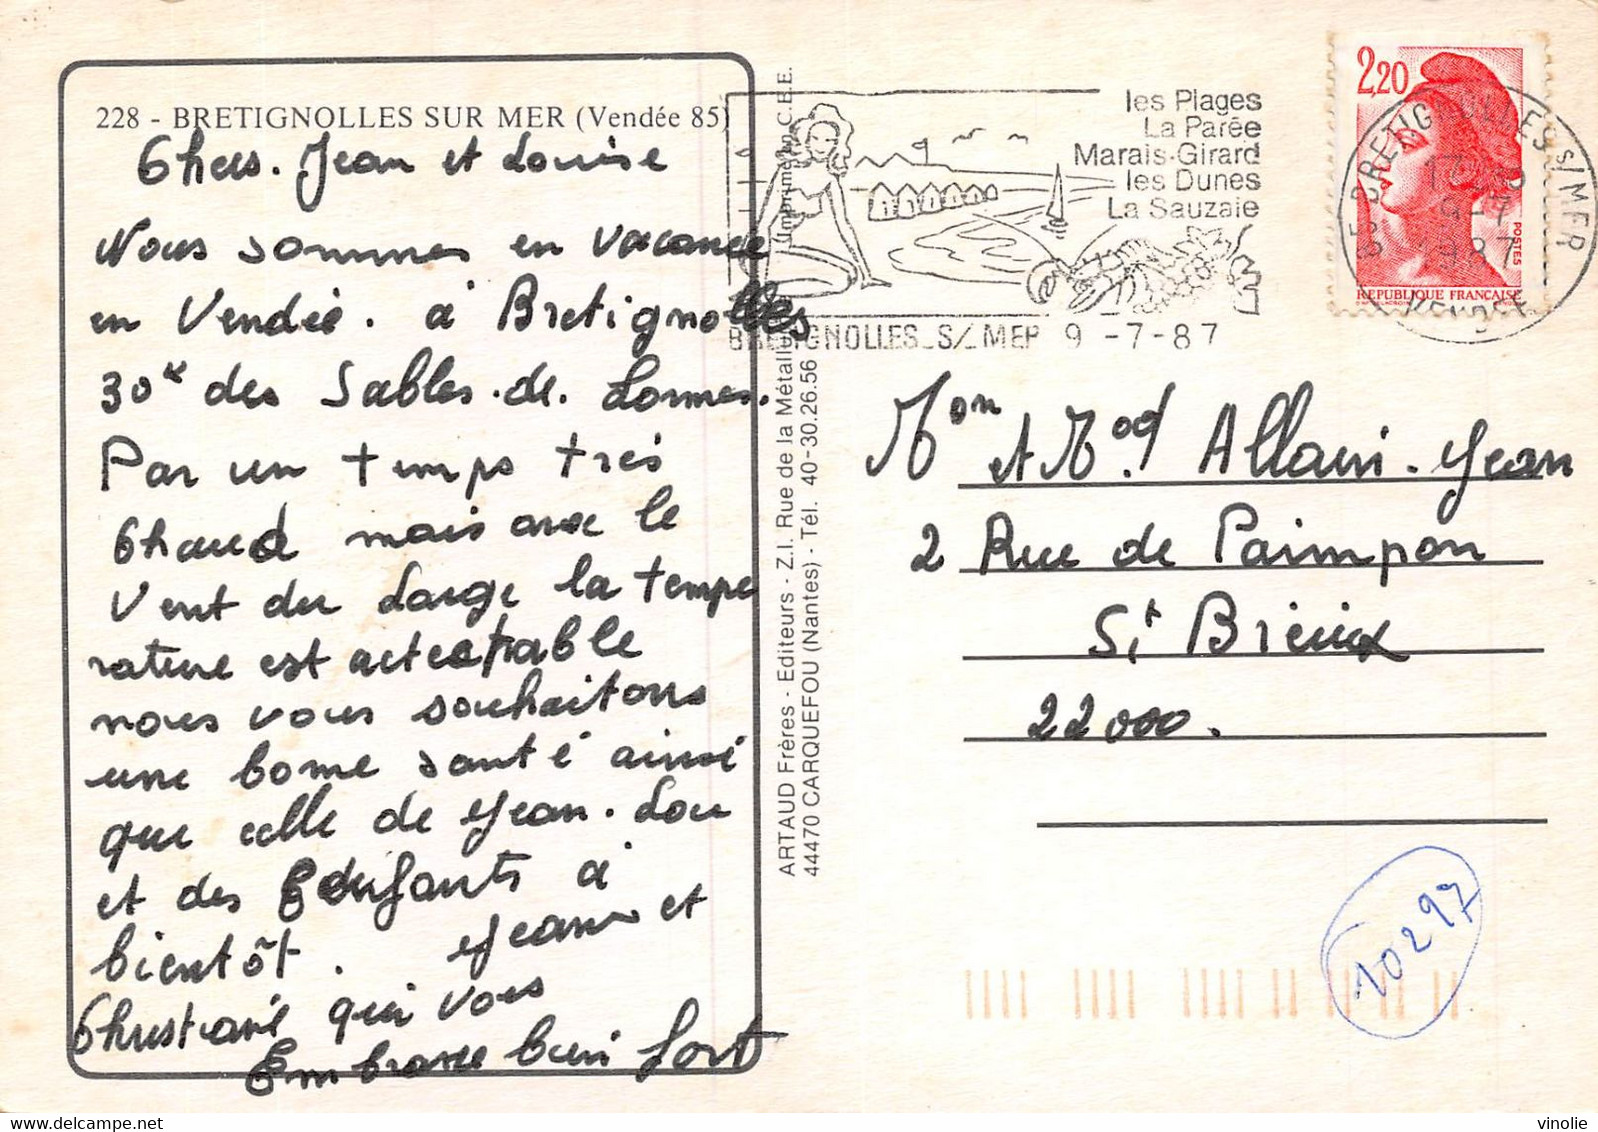 228 - BRETIGNOLLES SUR MER (Vendée 85)
Chers. Jean et Louise
Nous sommes en vacance
en Vendéé. à Bretignolles
30 des Sables. de. Lonnes.
Par un temps très
Chaud mais avec le
Vent du Large la tempe
rature est acteeptable
nous vous souhaitons
une bonne santé ainsi
que celle de Jean. Lou
et des Enfants à
bientôt. Jeanne et
Christiane qui vous
Embrasse bien fort
Imprimé en C.E.E.
ARTAUD Frères - Editeurs - Z.I. Rue de la Métallurgie
44470 CARQUEFOU (Nantes) - Tél. 40-30.26.56
les Plages
La Parée
Marais-Girard
les Dunes
La Sauzaie
BRETIGNOLLES_S/_MER 9 -7-87
2,20
POSTES
REPUBLIQUE FRANÇAISE
85 BRETIGNOLLES S/MER
9-7
1987
VENDEE
Mon et Mad Allain. Jean
2 Rue de Paimpon
St Brieux
22000.
10297
vinolie